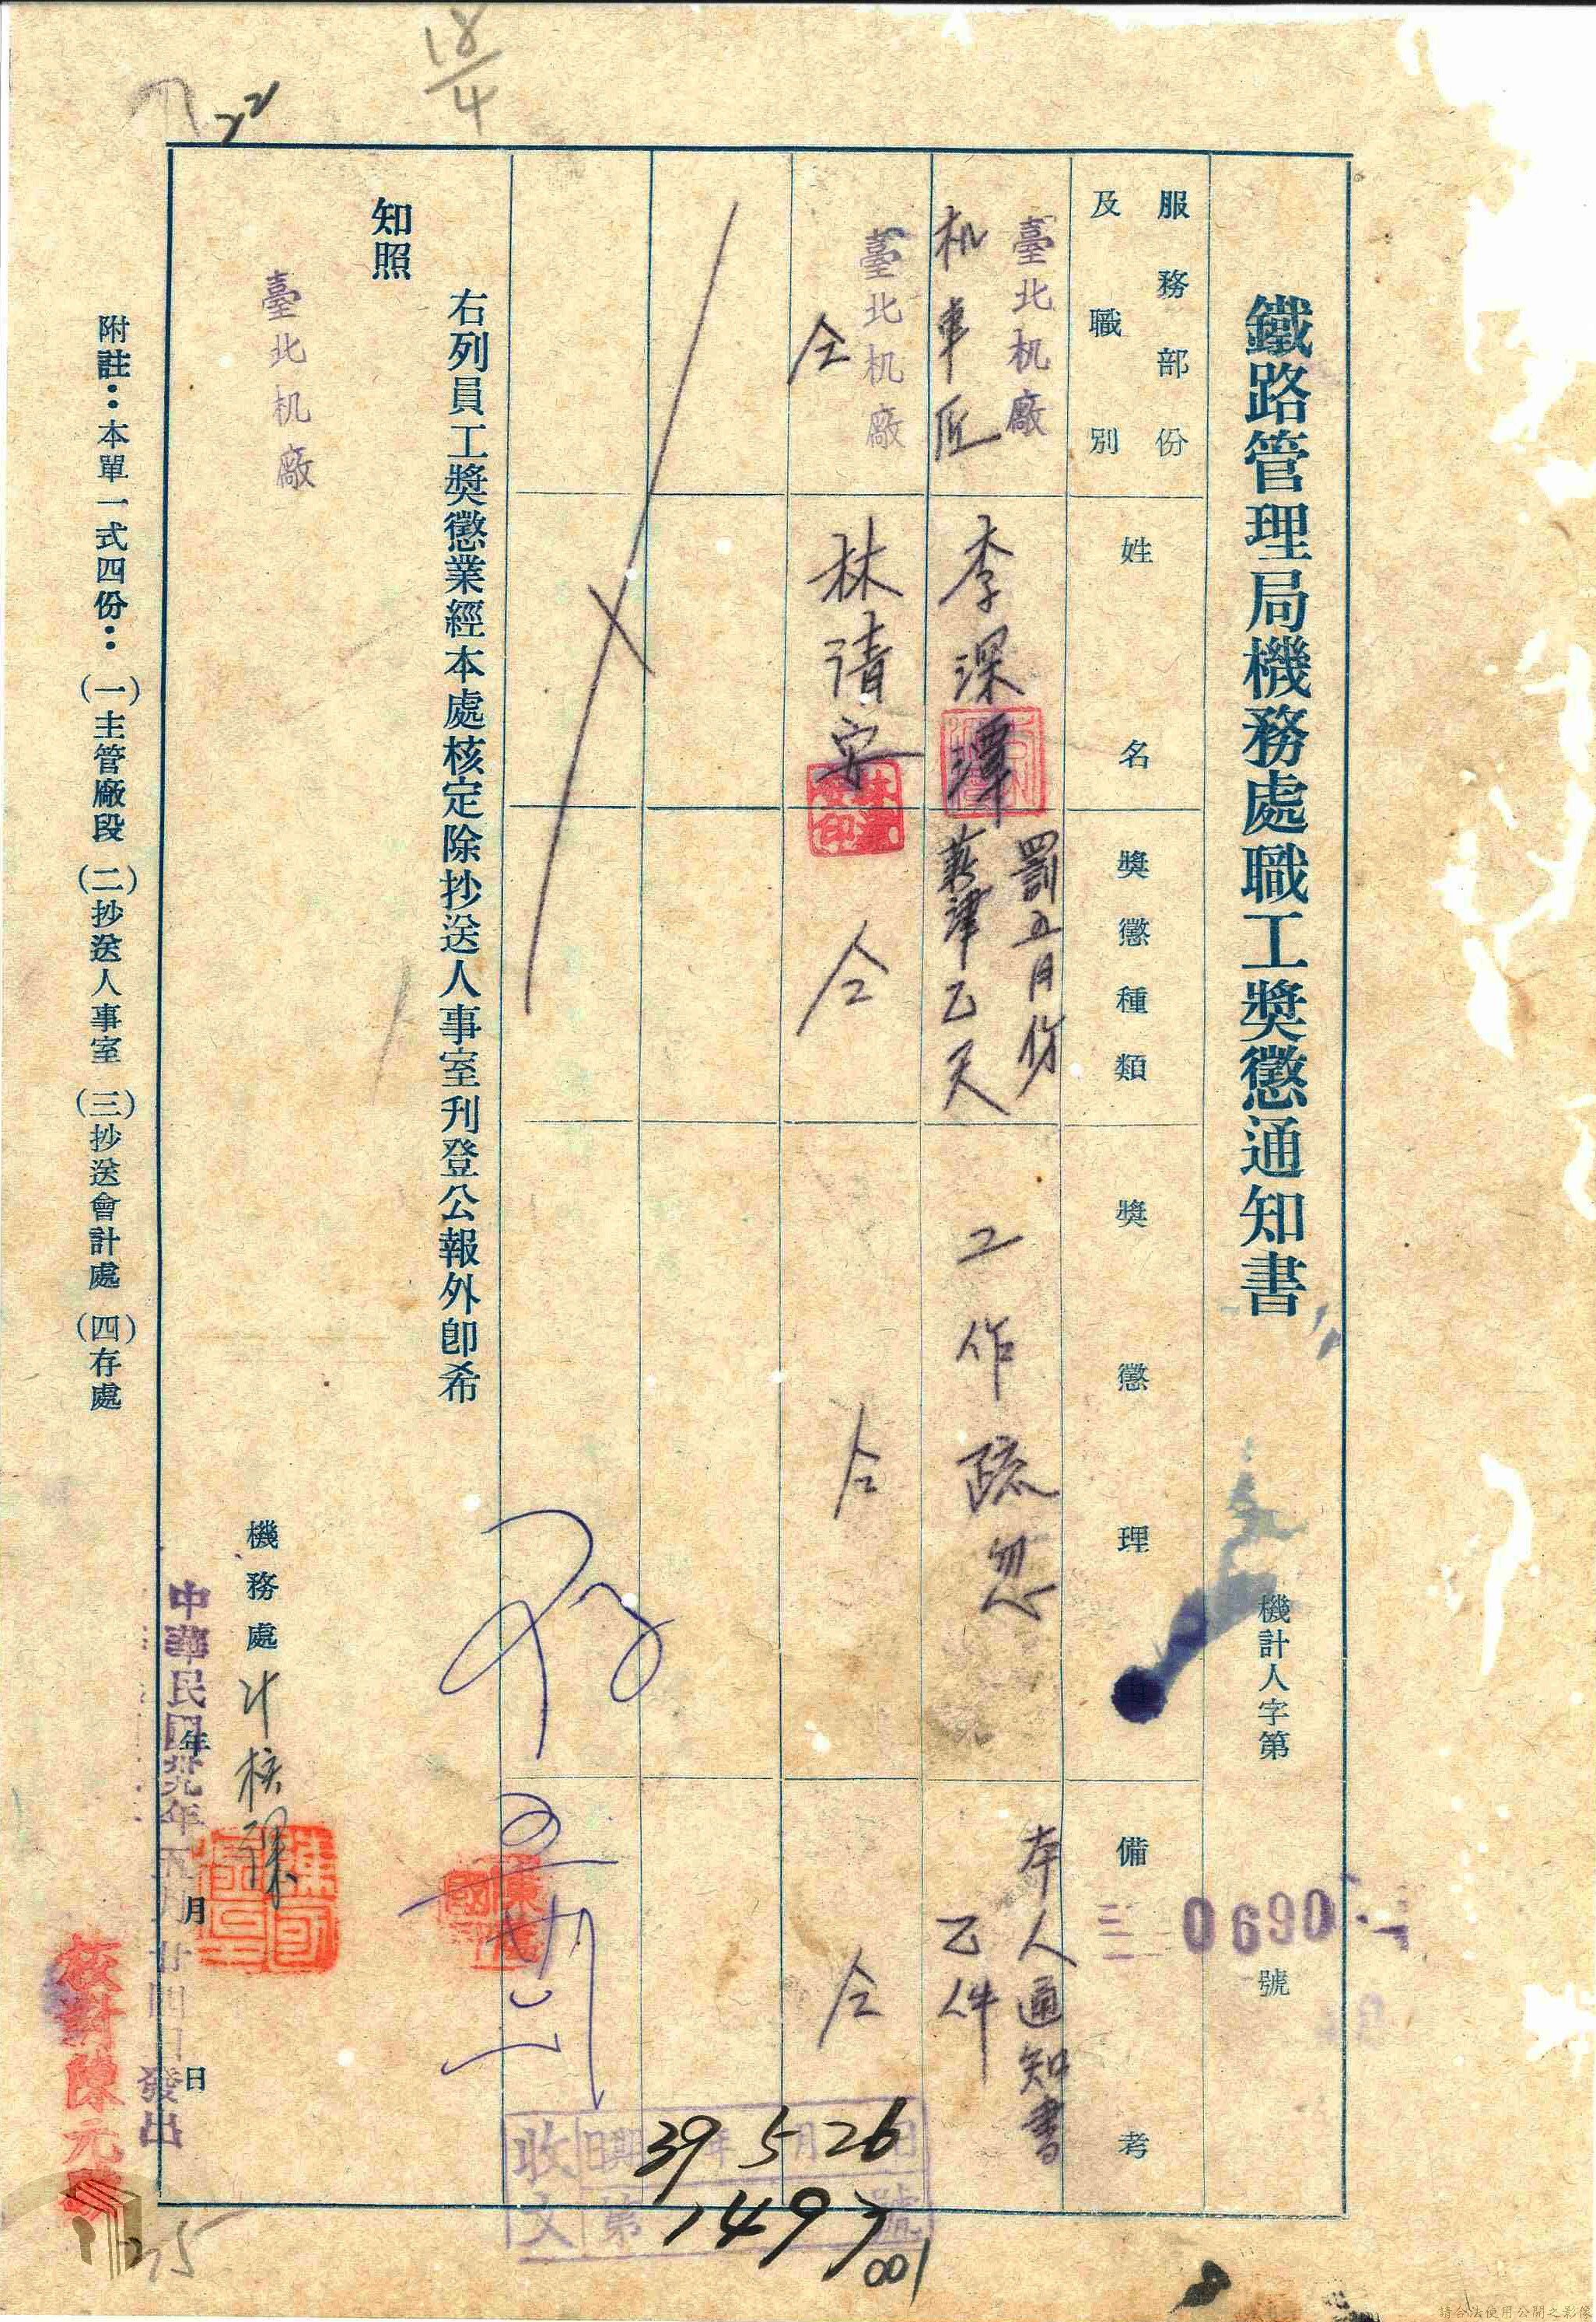 鐵路管理局機務處職工獎懲通知書
機計人字第
0690
號
服務部份
及職別
姓名
獎懲種類
獎懲理由
備考
臺北机廠
机車匠
李深潭
罰五月份
薪津乙天
工作疏忽
本人通知書
乙件
臺北机廠
仝
林清安
仝
仝
仝
右列員工獎懲業經本處核定除抄送人事室刊登公報外卽希
知照
臺北机廠
機務處計核課
年月日
中華民國卅九年五月廿四日發出
附註：本單一式四份：(一)主管廠段(二)抄送人事室(三)抄送會計處(四)存處
收文
日期39年5月26日
第1493號
001
18/4
22
25
請合法使用公開之影像